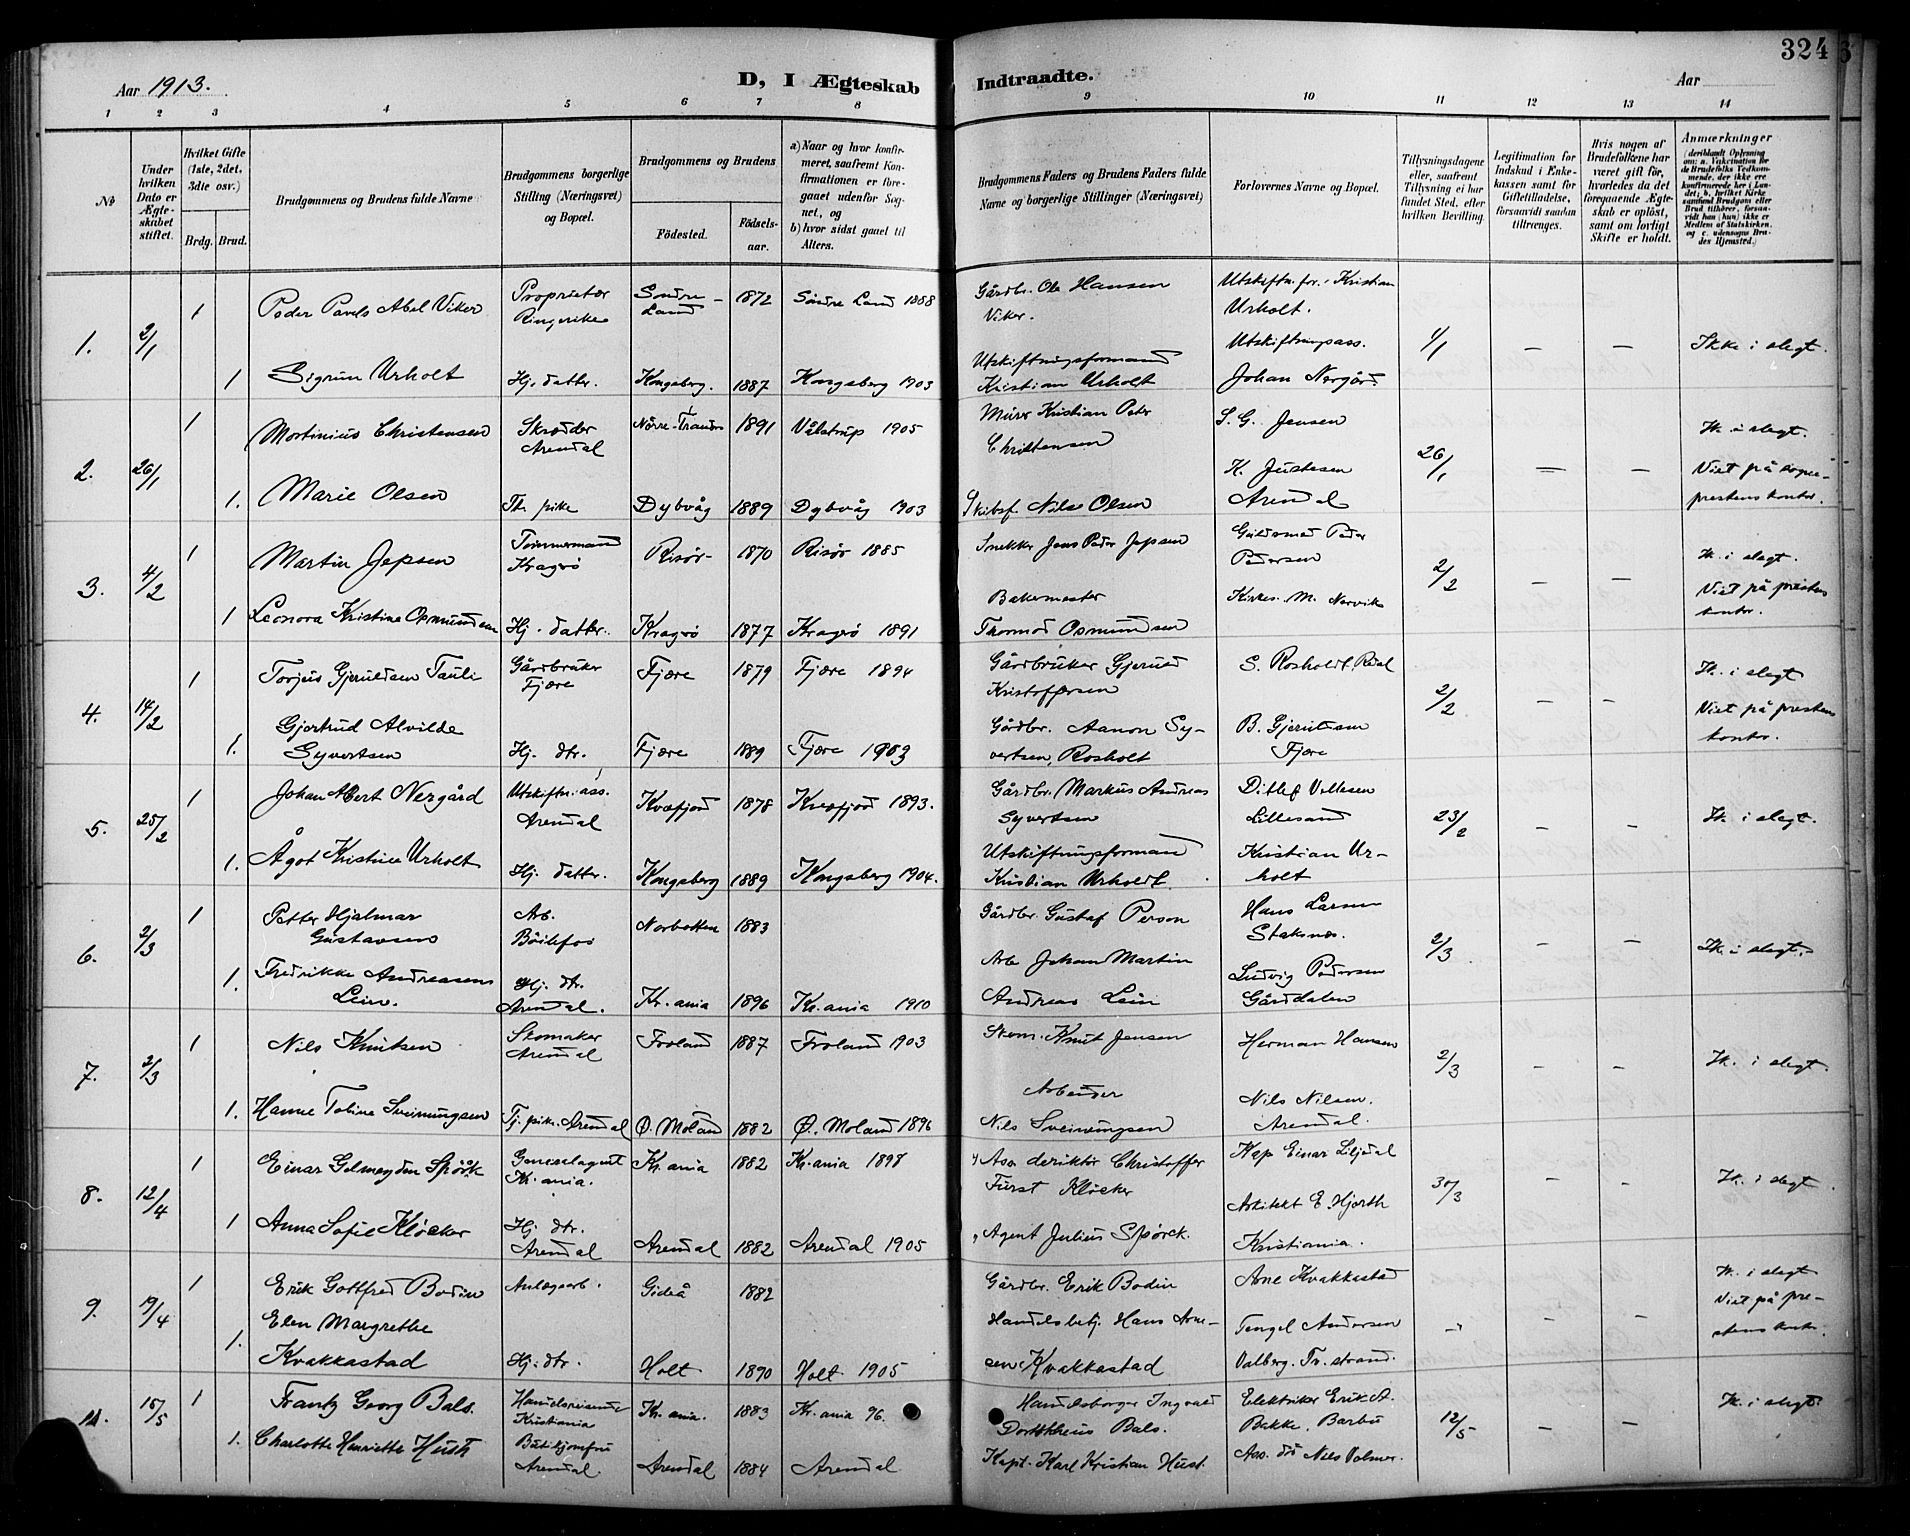 324
Aar 1913.
D, I Ægteskab Indtraadte.
Aar
1 2 3 4 5 6 7 8 9 10 11 12 13 14
№
Under hvilken Dato er Ægteskabet stiftet.
Hvilket Gifte (1ste, 2det, 3die osv.)
Brdg. Brud.
Brudgommens og Brudens fulde Navne
Brudgommens borgerlige Stilling (Næringsvei) og Bopæl.
Brudgommens og Brudens
Fødested.
Fødselsaar.
a) Naar og hvor konfirmeret, saafremt Konfirmationen er foregaaet udenfor Sognet, og
b) hvor sidst gaaet til Alters.
Brudgommens Faders og Brudens Faders fulde Navne og borgerlige Stillinger (Næringsvei)
Forlovernes Navne og Bopæl.
Tillysningsdagene eller, saafremt Tillysning ei har fundet Sted, efter hvilken Bevilling.
Legitimation for Indskud i Enkekassen samt for Giftetilladelse, forsaavidt saadan tiltrænges.
Hvis nogen af Brudefolkene har været gift før, hvorledes da det foregaaende Ægteskab er opløst, samt om lovligt Skifte er holdt.
Anmærkninger
(deriblandt Oplysning om: a. Vakcination for de Brudefolks Vedkommende, der ikke ere konfirmerede her i Landet; b. hvilket Kirkesamfund Brudgom eller Brud tilhører, forsaavidt han (hun) ikke er Medlem af Statskirken, og c. udensogns Brudes Hjemsted.)
1. 2/1 1 Peder Pavels Abel Viker Proprietær Ringerike Søndre-Land 1872 Søndre Land 1888 Gårdbr. Ole Hansen Viker. Utskiftn.for. Kristian Urholt. 1/1 – – Ikke i slegt.
1 Sigrun Urholt Hj. datter. Kongsberg. 1887 Kongsberg 1903 Utskiftningsformand Kristian Urholt Utskiftningsass. Johan Nergård
2. 26/1 1 Martinius Christensen Skræder Arendal Nørre-Tranders 1891 Vålstrup 1905 Murer Kristian Peter Christensen S. G. Jensen 26/1 – – Ik. i slegt. Viet på sogneprestens kontor.
1. Marie Olsen Tj. pike Dybvåg 1889 Dybvåg 1903 Skibsf. Nils Olsen K. Justesen Arendal
3. 4/2 1 Martin Jepsen Tømmermand Kragrø Risør 1870 Risør 1885 Snekker Jens Peder Jepsen Guldsmed Peder Pedersen 2/2 – – Ik. i slegt. Viet på prestens kontor.
1 Leonora Kristine Osmundsen Hj. datter. Kragrø 1877 Kragrø 1891 Bakermester Thormod Osmundsen Kirkes. M. Nervik
4. 14/2 1 Torjus Gjeruldsen Tauli Gårdbruker Fjære Fjære 1879 Fjære 1894 Gårdbruker Gjeruld Kristoffersen S. Rosholdt, 2/2 – – Ik. i slegt Viet på prestens kontor.
1. Gjertrud Alvilde Syvertsen Hj. dtr. Fjære 1889 Fjære 1903 Gårdbr. Aanon Syvertsen, Rosholt B. Gjeruldsen Fjære
5. 25/2 1 Johan Albert Nergård Utskiftn. ass. Arendal Kvæfjord 1878 Kvæfjord 1893. Gårdbr. Markus Andreas Syvertsen Ditlef Vellesen Lillesand 23/2 – – Ik. i slegt.
1. Ågot Kristine Urholt Hj. datter. Kongsberg 1889 Kongsberg 1904. Utskiftningsformand Kristian Urholdt. Kristian Urholt
6. 2/3 1 Petter Hjalmar Gustavsen Arb. Bøilefos Norbotten 1883 Gårdbr. Gustaf Person Hans Larsen Staksnæs. 2/3 – – Ik. i slegt.
1. Fredrikke Andreasens Lein. Hj. dtr. Arendal. Kr.ania 1896 Kr.ania 1910 Arb Johan Martin Andreas Lein Ludvig Pedersen Gårddalen
7. 2/3 1 Nils Knutsen Skomaker Arendal Froland 1887 Froland 1903 Skom. Knut Jensen Herman Hansen 2/3 – – Ik. i slegt.
1. Hanne Tobine Sveinungsen Tj. pike. Arendal Ø. Moland 1882 Ø. Moland 1896 Arbeider Nils Sveinungsen Nils Nilsen. Arendal.
8. 12/4 1 Einar Gelmeyden Spørk Generalagent Kr.ania. Kr.ania 1882 Kr.ania 1898 Ass. deriktør Christoffer Fürst Kløcker Kap Einar Liljedal 30/3 – – Ik. i slegt.
1 Anna Sofie Kløcker Hj. dtr. Arendal Arendal 1882 Arendal 1905 Agent Julius Spørck. Arkitekt E. Hjorth Kristiania.
9. 19/4 1 Erik Gottfred Bodin Anlægsarb. Gideå 1882 Gårdbr. Erik Bodin Arne Kvakkestad – – – Ik. i slegt Viet på prestens kontor.
1. Elen Margrethe Kvakkastad Hj. dtr. Holt 1890 Holt 1905 Handelsbetj. Hans Arnesen Kvakkastad Tengel Andersen Valberg. Tv.strand.
10. 15/5 1 Frantz Georg Bals. Handelsreisende Kristiania Kr.ania. 1883 Kr.ania 96. Handelsborger Ingvald Dorotheus Bals. Elektriker Erik A. Bakke, Barbu 12/5 – – Ik. i slegt.
1. Charlotte Henriette Husth Butikjomfru Arendal. Arendal 1884 Arendal Kapt. Karl Kristian Hust. Ass. Nils Volmer.